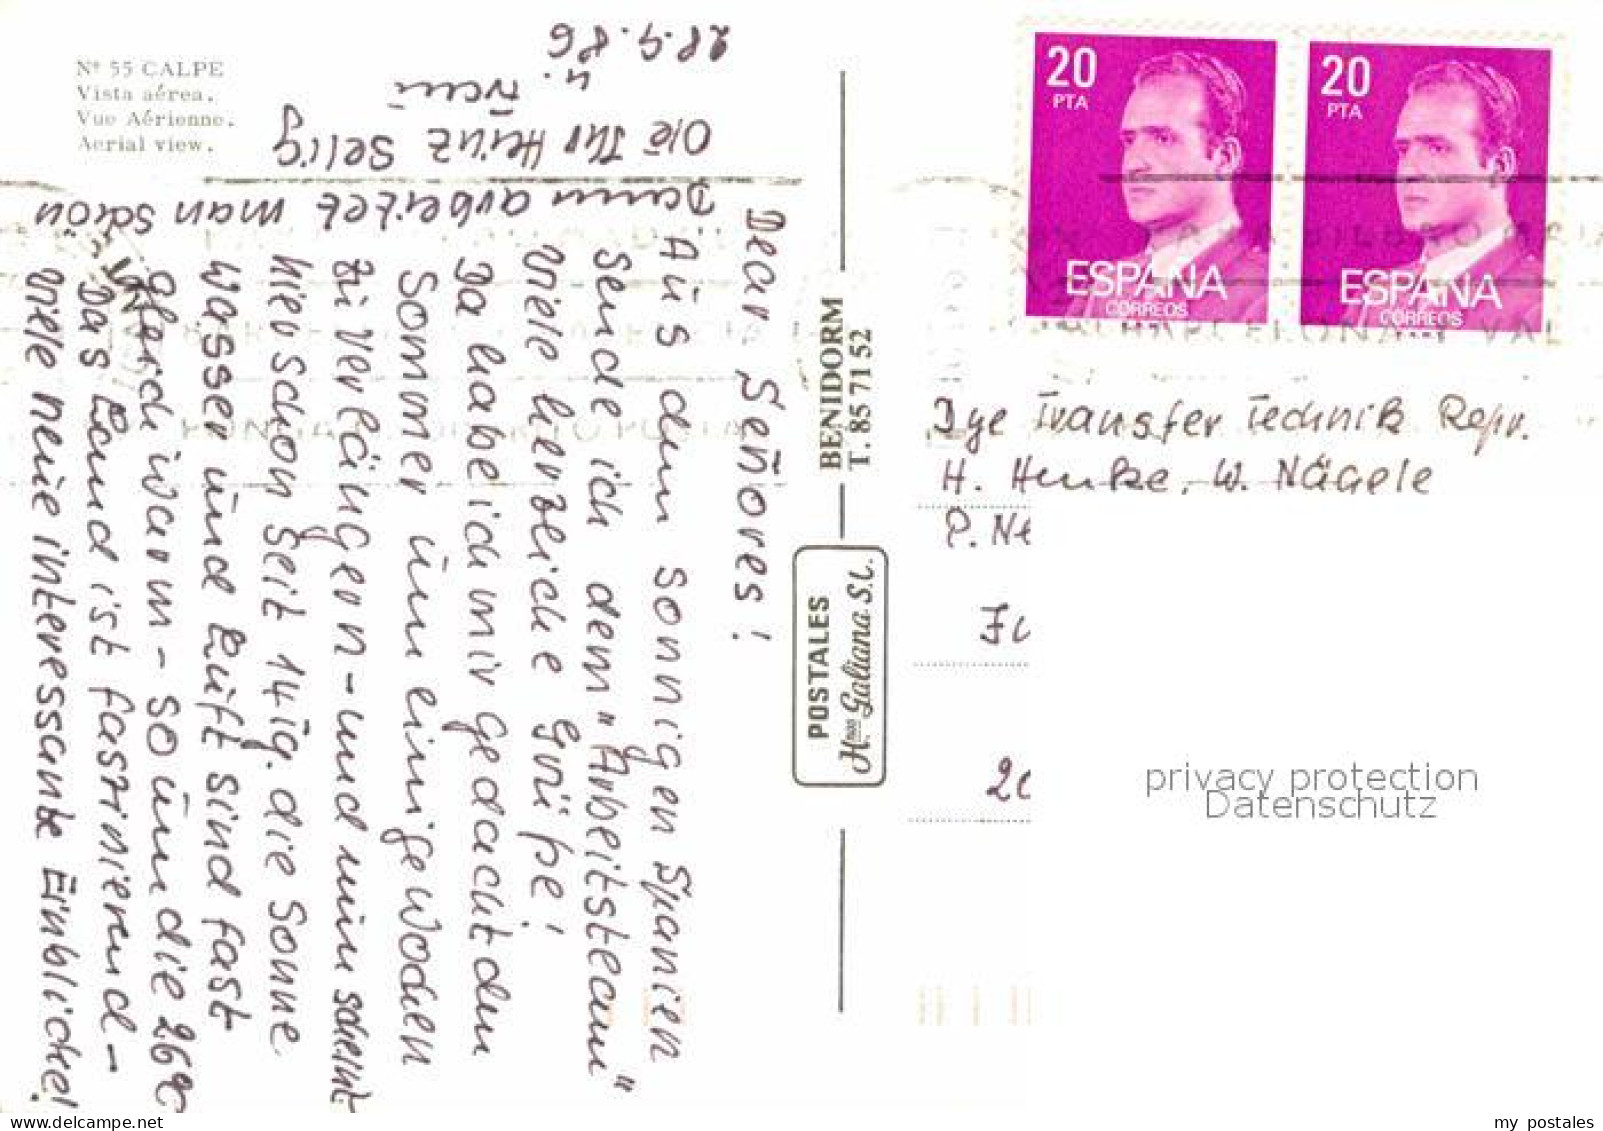 Nº 55 CALPE
Vista aérea.
Vue Aérienne.
Aerial view.
28.9.86
Dear Señores!
Aus dem sonnigen Spanien
sende ich dem "Arbeitsteam"
viele herzliche Grüße!
Da habe ich mir gedacht den
Sommer um einige Wochen
zu verlängern - und nun scheint
hier schon seit 14 Tg. die Sonne
Wasser und Luft sind fast
gleich warm - so um die 26°C
Das Land ist faszinierend -
viele neue interessante Einblicke!
Dann arbeitet man schön
Olé Ihr Heinz Selig
u.
BENIDORM
T. 85 71 52
POSTALES
Hnos Galiana S.L.
20
PTA
ESPAÑA
CORREOS
20
PTA
ESPAÑA
CORREOS
Dye Transfer Technik Repr.
H. Henke, W. Nägele
P. Ne
20
privacy protection
Datenschutz
delcampe.net
my_postales